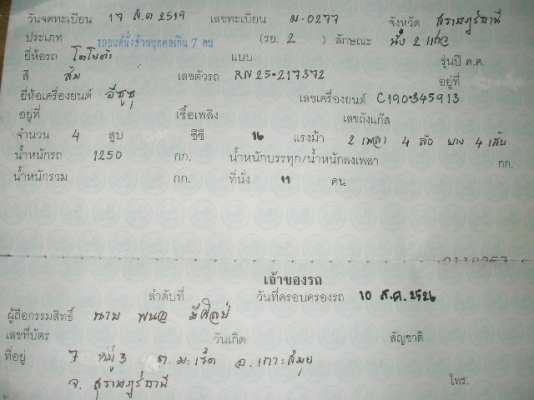 วันจดทะเบียน 17 ส.ค 2519 เลขทะเบียน ม-0277 จังหวัด สุราษฎร์ธานี
ประเภท รถยนต์นั่งส่วนบุคคลเกิน 7 คน (รย. 2) ลักษณะ นั่ง 2 แถว
ยี่ห้อรถ โตโยต้า แบบ รุ่นปี ค.ศ.
สี ส้ม เลขตัวรถ RN25-217372 อยู่ที่
ยี่ห้อเครื่องยนต์ อีซูซุ เลขเครื่องยนต์ C190-345913
อยู่ที่ เชื้อเพลิง เลขถังแก๊ส
จำนวน 4 สูบ ซีซี แรงม้า 2 เพลา 4 ล้อ ยาง 4 เส้น
น้ำหนักรถ 1250 กก. น้ำหนักบรรทุก/น้ำหนักลงเพลา กก.
น้ำหนักรวม กก. ที่นั่ง 11 คน
เจ้าของรถ
ลำดับที่ วันที่ครอบครองรถ 10 ส.ค. 2526
ผู้ถือกรรมสิทธิ์ นาย มีศิลป์
เลขที่บัตร วันเกิด สัญชาติ
ที่อยู่ 7 หมู่ 3 ต.มะเร็ต อ.เกาะสมุย
จ. สุราษฎร์ธานี โทร.